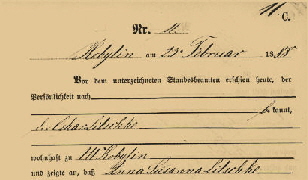 C.
Nr. 11.
Kobylin am 23 Februar 1885
Vor dem unterzeichneten Standesbeamten erschien heute, der
Persönlichkeit nach
kannt,
wohnhaft zu Alt Kobylin
und zeigte an, daß Anna Susanna